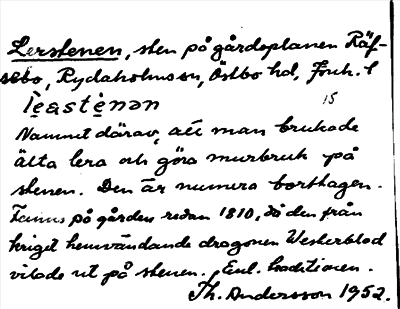 Lerstenen, sten på gårdsplanen Räf-
sebo, Rydaholms sn, Östbo hd, Jönk. l
lèastènən 15
Namnet därav, att man brukade
älta lera och göra murbruk på
stenen. Den är numera borttagen.
Fanns på gården redan 1810, då den från
kriget hemvändande dragonen Westerblad
vilade ut på stenen. Enl. traditionen.
Th. Andersson 1952.